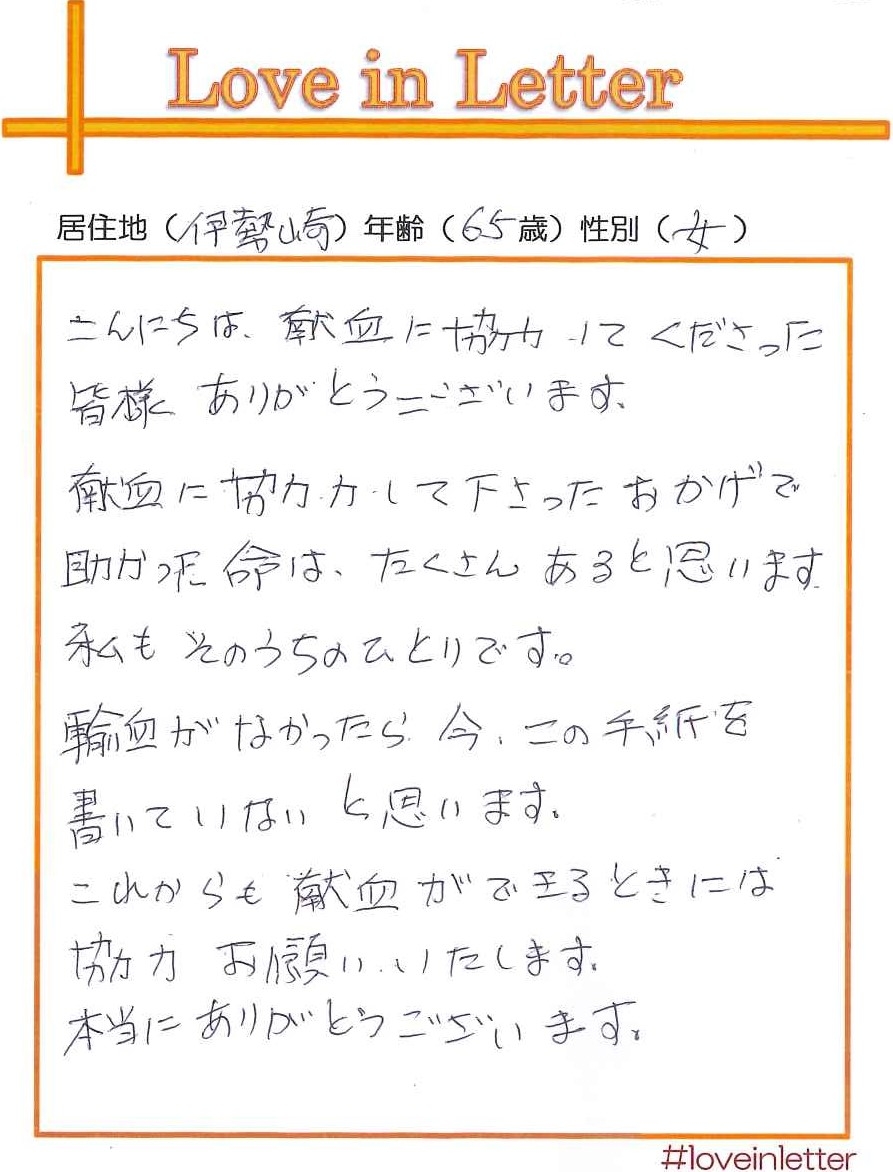 Love in Letter
居住地（伊勢崎）年齢（65歳）性別（女）
こんにちは、献血に協力してくださった
皆様 ありがとうございます。
献血に協力して下さったおかげで
助かった命は、たくさんあると思います
私もそのうちのひとりです。
輸血がなかったら今、この手紙を
書いていないと思います。
これからも献血ができるときには
協力お願いいたします。
本当にありがとうございます。
#loveinletter